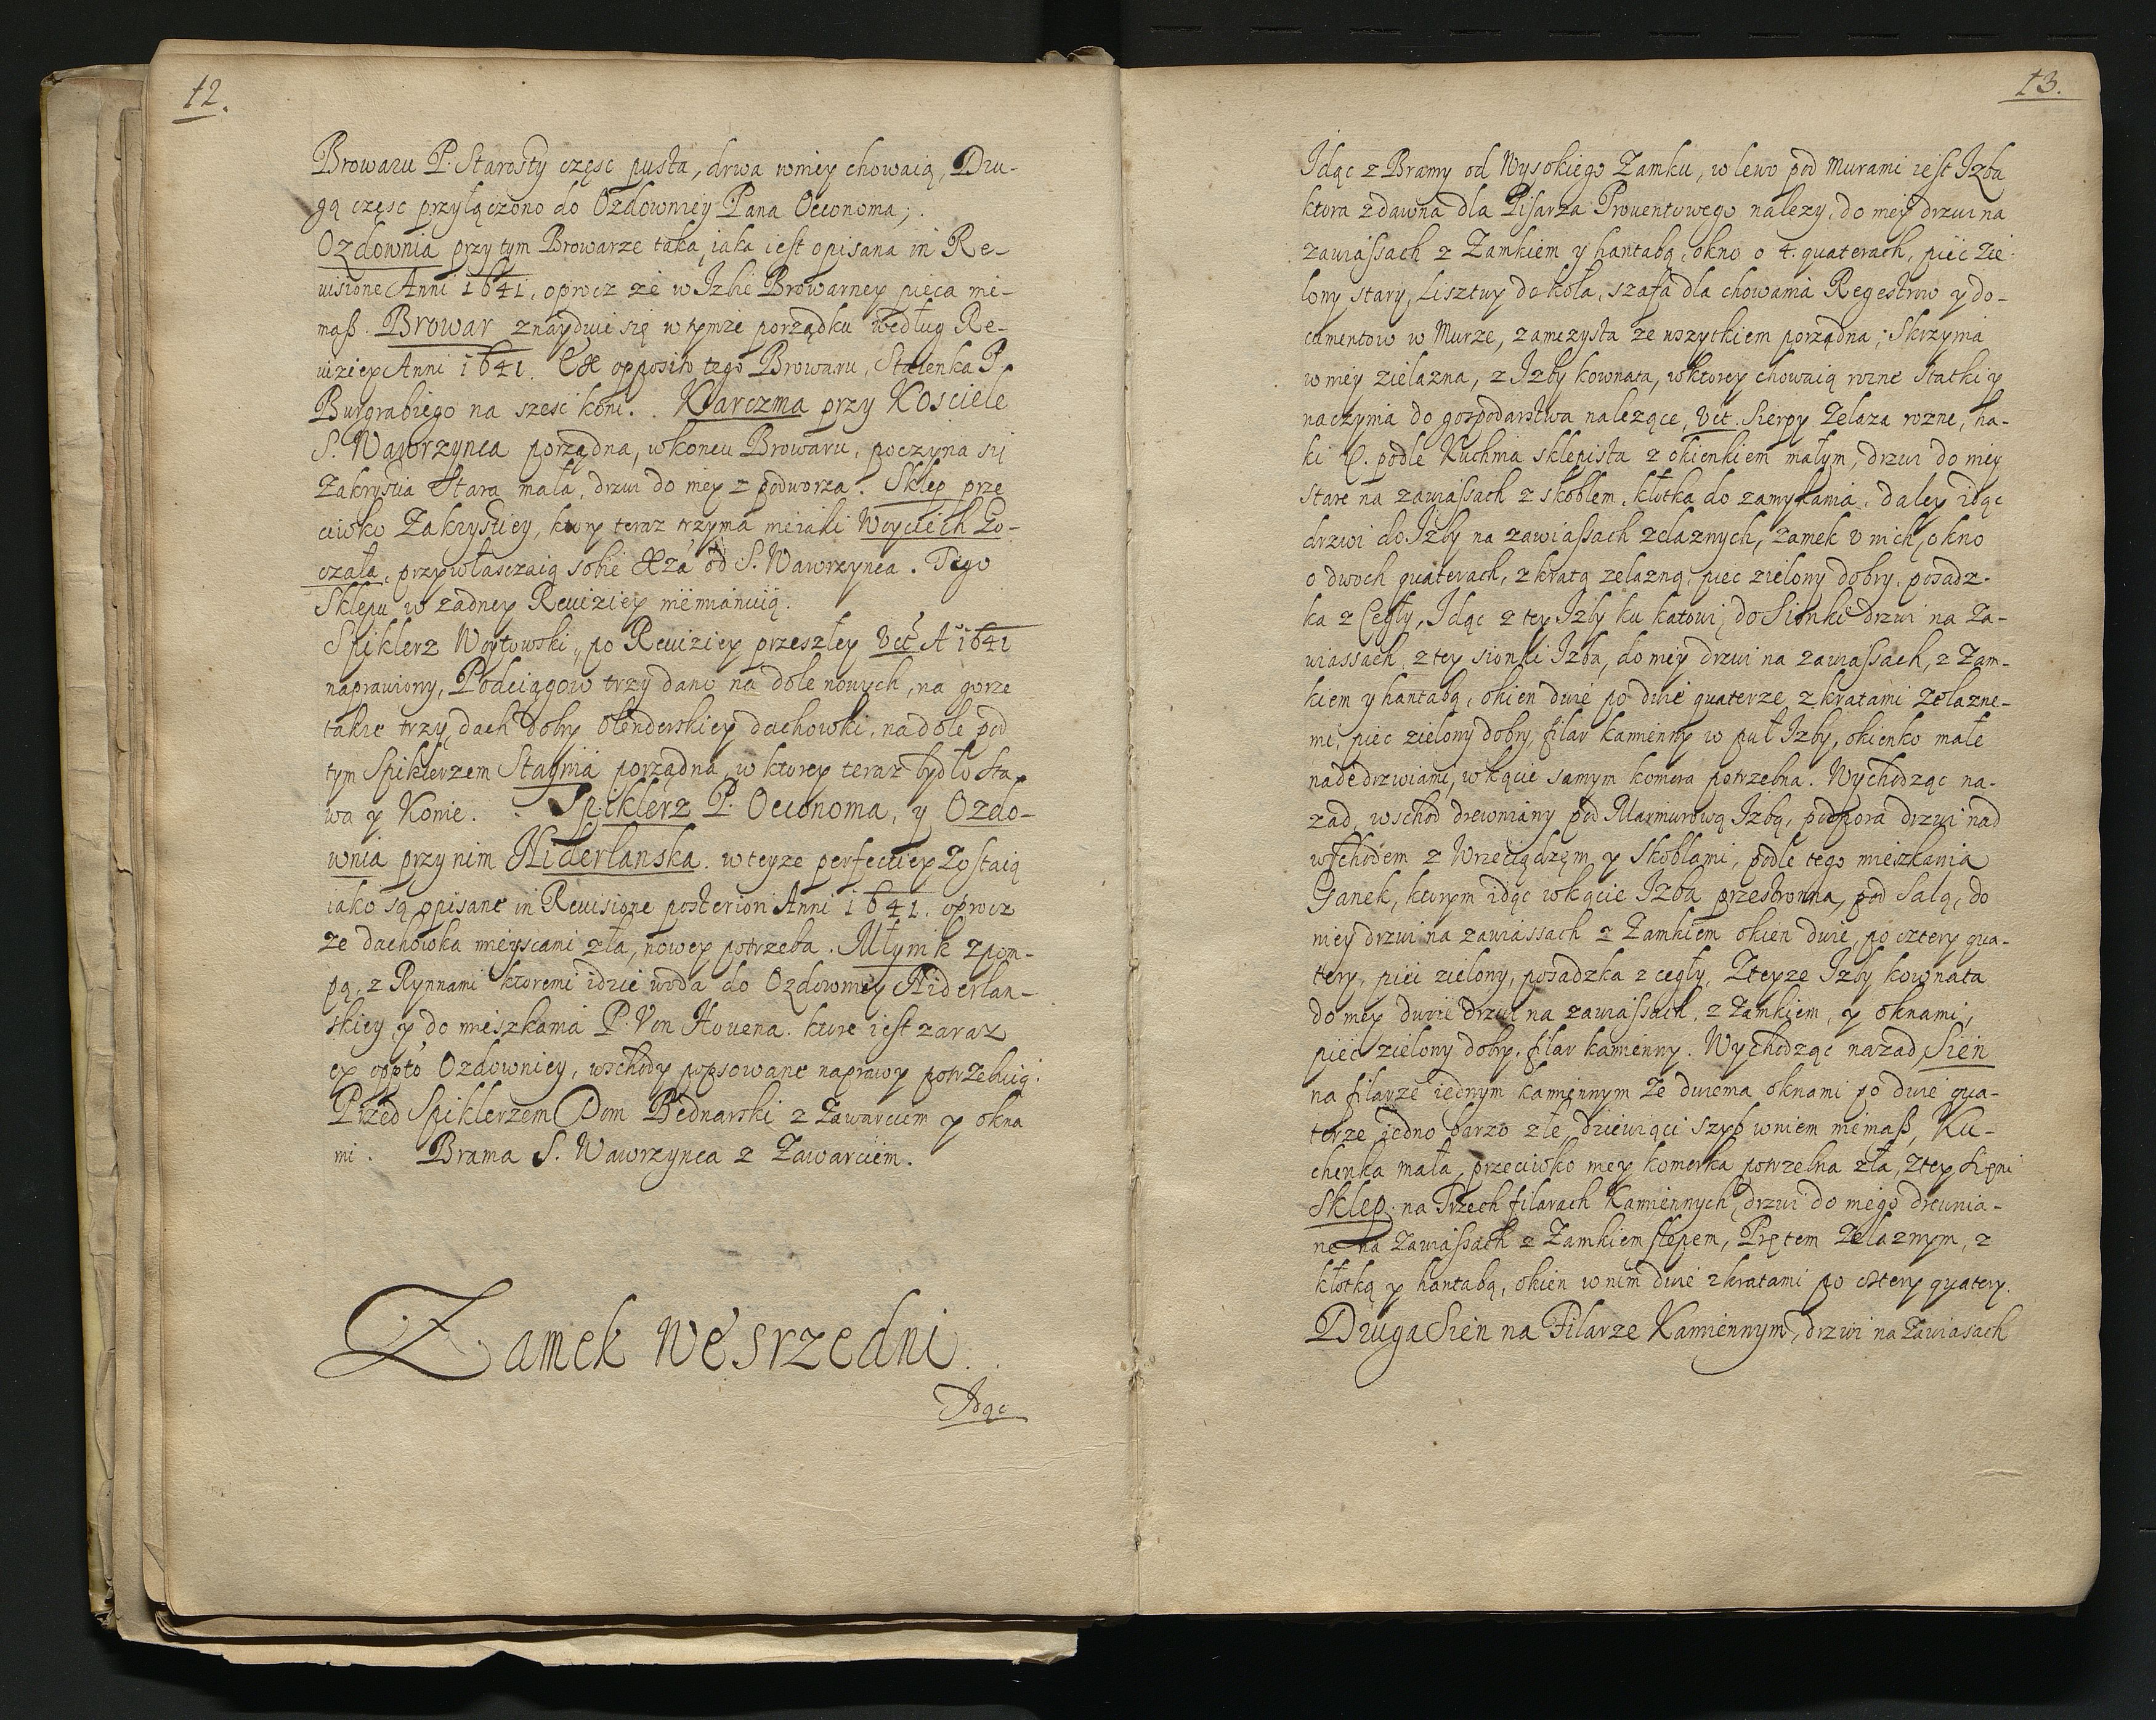 12.
Browaru P. Starosty częsc pusta, drwa wniey chowaią, Dru-
gą częsc przyłączono do Ozdowniey Pana Oeconoma;
Ozdownia przy tym Browarze taka iaka iest opisana in Re-
uisione Anni 1641. oprocz że w Izbie Browarney pieca nie-
maß. Browar znayduie się wtymże porządku według Re-
uiziey Anni 1641. Ex opposito tego Browaru, Staienka P.
Burgrabiego na szesc koni. Karczma przy Kosciele
S. Wawrzynca porządna, wkoncu Browaru, poczyna się
Zakrystia Stara mała, drzwi do niey z podworza. Sklep prze
ciwko Zakrystiey, ktory teraz trzyma nieiaki Woyciech Go-
czała, przywłasczaią sobie Xża od S. Wawrzynca. Tego
Sklepu w żadney Reuiziey niemianuią.
Spiklerz Woytowski, po Reuiziey przeszłey Vct A° 1641
naprawiony, Podciągow trzy dano na dole nowych, na gorze
takie trzy, dach dobry olenderskiey dachowki, na dole pod
tym Spiklerzem Staynia porządna, w ktorey teraz bydło sta
wa y Konie. Spiklerz P. Oeconoma, y Ozdo-
wnia przy nim Niderlanska. wteyze perfectiey zostaią
iako są opisane in Reuisione posteriori Anni 1641. oprocz
ze dachowka mieyscami zła, nowey potrzeba. Młynik z pom-
pą, z Rynnami ktoremi idzie woda do Ozdowniey Niderlan-
skiey y do mieszkania P. Von Houena. ktore iest zaraz
ex oppto Ozdowniey, wschody popsowane naprawy potrzebuią.
Przed Spiklerzem Dom Bednarski z zawarciem y okna
mi. Brama S. Wawrzynca z Zawarciem.
Zamek we srzedni.
Idąc
13.
Idąc z Bramy od Wysokiego Zamku, w lewo pod murami iest Izba
ktora zdawna dla Pisarza Prouentowego nalezy, do niey drzwi na
zawiassach z Zamkiem y hantabą, okno o 4. quaterach, piec zie-
lony stary, Lisztwy do koła, szafa dla chowania Regestrow y do-
cumentow w Murze, zamczysta ze wszytkiem porządna; Skrzynia
w niey zielazna, z Izby kownata, wktorey chowaią rozne Statki y
naczynia do gospodarstwa nalezące, Vct. Sierpy Zelaza rozne, ha-
ki &. podle Kuchnia sklepista z okienkiem małym, drzwi do niey
stare na zawiassach z skoblem, kłotka do zamykania. daley idąc
drzwi do Izby na zawiassach zelaznych, zamek v nich, okno
o dwoch quaterach, z kratą zelazną, piec zielony dobry, posadz-
ka z Cegły, Idąc z tey Izby ku katowi, do Sionki drzwi na za-
wiassach, z tey sionki Izba, do niey drzwi na zawiassach, z Zam-
kiem y hantabą, okien dwie po dwie quaterze z kratami zelazne-
mi, piec zielony dobry, filar kamienny w puł Izby, okienko małe
nadedrzwiami, w kącie samym komora potrzebna. Wychodząc na-
zad, wschod drewniany pod Marmurową Izbą, podpora drzwi nad
wschodem z Wrzeciądzem y skoblami, podle tego mieszkania
Ganek, ktorym idąc wkącie Izba przestronna, pod Salą, do
niey drzwi na zawiassach z Zamkiem okien dwie, po cztery qua-
tery, piec zielony, posadzka z cegły, Zteyze Izby kownata
do niey dwoie drzwi na zawiassach, z Zamkiem, y oknami,
piec zielony dobry, filar kamienny. Wychodząc nazad, Sien
na filarze iednym kamiennym Ze dwiema oknami po dwie qua-
terze iedno barzo złe, dziewiąci szyb wniem niemaß, Ku-
chenka mała, przeciwko niey komorka potrzebna zła, Ztey Sieni
Sklep na Trzech filarach Kamiennych, drzwi do niego drewnia-
ne na Zawiassach z Zamkiem slepem, Prętem Zelaznym, z
kłotką y hantabą, okien w nim dwie z kratami po cztery quatery.
Druga Sien na Filarze Kamiennym, drzwi na Zawiasach